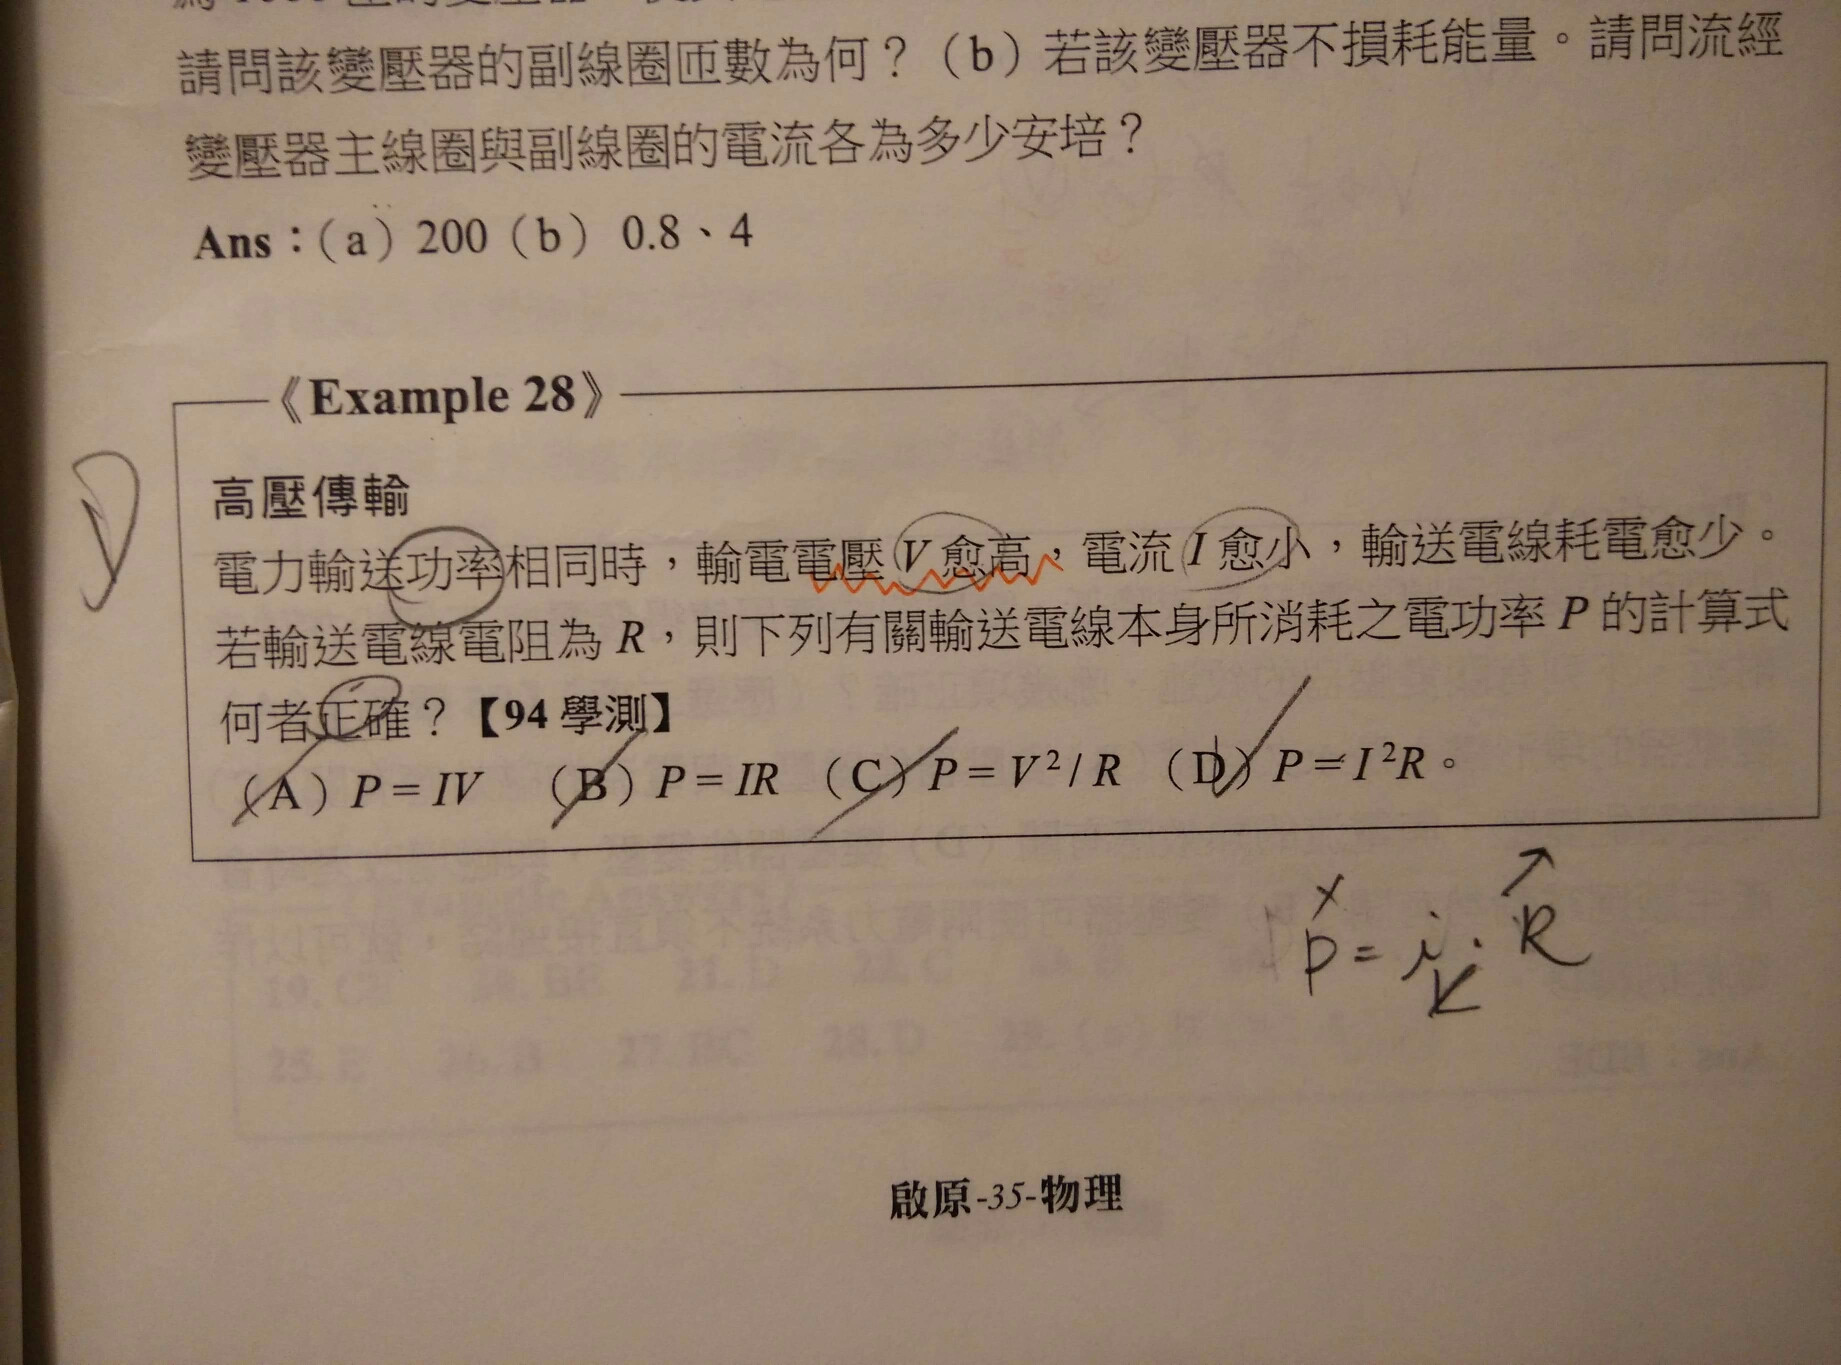 請問該變壓器的副線圈匝數為何？（b）若該變壓器不損耗能量。請問流經
變壓器主線圈與副線圈的電流各為多少安培？
Ans：（a）200（b） 0.8、4
《Example 28》
D
高壓傳輸
電力輸送功率相同時，輸電電壓 V 愈高，電流 I 愈小，輸送電線耗電愈少。
若輸送電線電阻為 R，則下列有關輸送電線本身所消耗之電功率 P 的計算式
何者正確？【94 學測】
（A）P = IV （B）P = IR （C）P = V²/ R （D）P = I²R。
P = i · R
啟原-35-物理